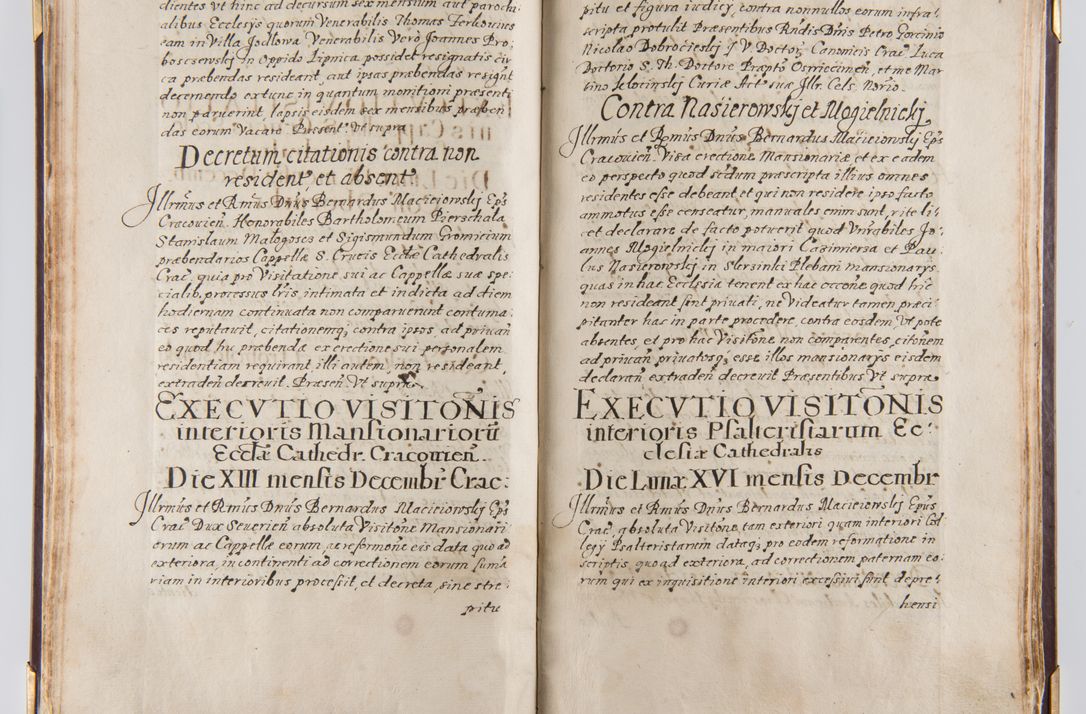 dientes Vt hinc ad decursum sex mensium aut parochi-
alibus Ecclesijs quorum Venerabilis Thomas Ferkowicz
eam in Villa Jodlowa Venerabilis Vero Joannes Pro-
boscsewskj in Oppido Lipnica possidet resignatis cir-
ca præbendas resideant, aut ipsas præbendas resignt
decernendo extunc in quantum monitioni præsenti
non paruerint, lapsis eisdem sex mensibus præben
das eorum Vacare Præsent. Vt supra
Decretum citationis contra non
resident. et absent.
Jllrmus et Rmus Dnus Bernardus Macieiowskj Eps
Cracouien. Honorabiles Bartholomeum Pierschala
Stanislaum Malogosca et Sigismundum Gromicium
præbendarios Cappellæ S. Crucis Ecclæ Cathedralis
Crac. quia pro Visitatione sui ac Cappellæ suæ spe-
cialib. processus lris, intimata et indicta ad diem
hodiernam continuata non comparuerunt contuma-
ces reputauit, citationemq; contra ipsos ad priuan
eo quod hæ præbendæ ex erectione sui personalem
residentiam requirant illi autem non resideant
extraden decreuit. Præsen. Vt supra
EXECVTIO VISITONIS
interioris Mansionarioru
Ecclæ Cathedr. Cracouien.
Die XIII mensis Decembr. Crac:
Jllrmus et Rmus Dnus Bernardus Macieiowskj Eps
Crac. Dux Seuerien absoluta Visitone Mansionari
orum ac Cappellæ eorum, ac reformone eis data quo ad
exteriora, in continenti ad correctionem eorum suma
riam in interioribus processit, et decreta, sine stre-
pitu
pitu et figura iudicij, contra nonnullos eorum infra-
scripta protulit Præsentibus Rndis Dnis Petro Gorcinio
Nicolao Dobrocieskj J V. Doctor. Canonicis Crac. Luca
Doctorio S. Th. Doctore Præpto Oswiecimen, et me Mar
tino Jelocinskj Curiæ Act. suæ Jllr. Cels. Norio.
Contra Nasierowskj et Mogielnickj
Jllrmus et Rmus Dnus Bernardus Macieiowskj Eps
Cracouien. Visa erectione Mansionariæ et ex eadem
eo perspecto quod scdum præscripta illius omnes
residentes esse debeant et qui non residere ipso facto
ammotus esse censeatur, manuales enim sunt, rite li-
cet declarare de facto potuerit quod Vnrabiles Jo-
annes Mogielnickj in maiori Cazimiersa et Pau-
lus Nasierowskj in Slersinki Plebani mansionarys
quas in hac Ecclesia tenent ex hac occone quod hic
non resideant sint priuati, ne Videatur tamen præci-
pitanter hac in parte procedere, contra eosdem, Vt pote
absentes, et pro hac Visitone non comparentes, citonem
ad priuan priuatosq; esse illos mansionarys eisdem
declaran extraden decreuit Præsentibus Vt supra
EXECVTIO VISITONIS
interioris Psalteristarum Ec-
clesiæ Cathedralis
Die Lunæ XVI mensis Decembr
Jllrmus et Rmus Dnus Bernardus Macieiowskj Epus
Crac. absoluta Visitone, tam exteriori quam interiori Col
legij Psalteristarum dataq; pro eodem reformatione in
scriptis, quoad exteriora, ad correctionem paternam eo-
rum qui ex inquisitione interiori excessiui sint depre-
hensi